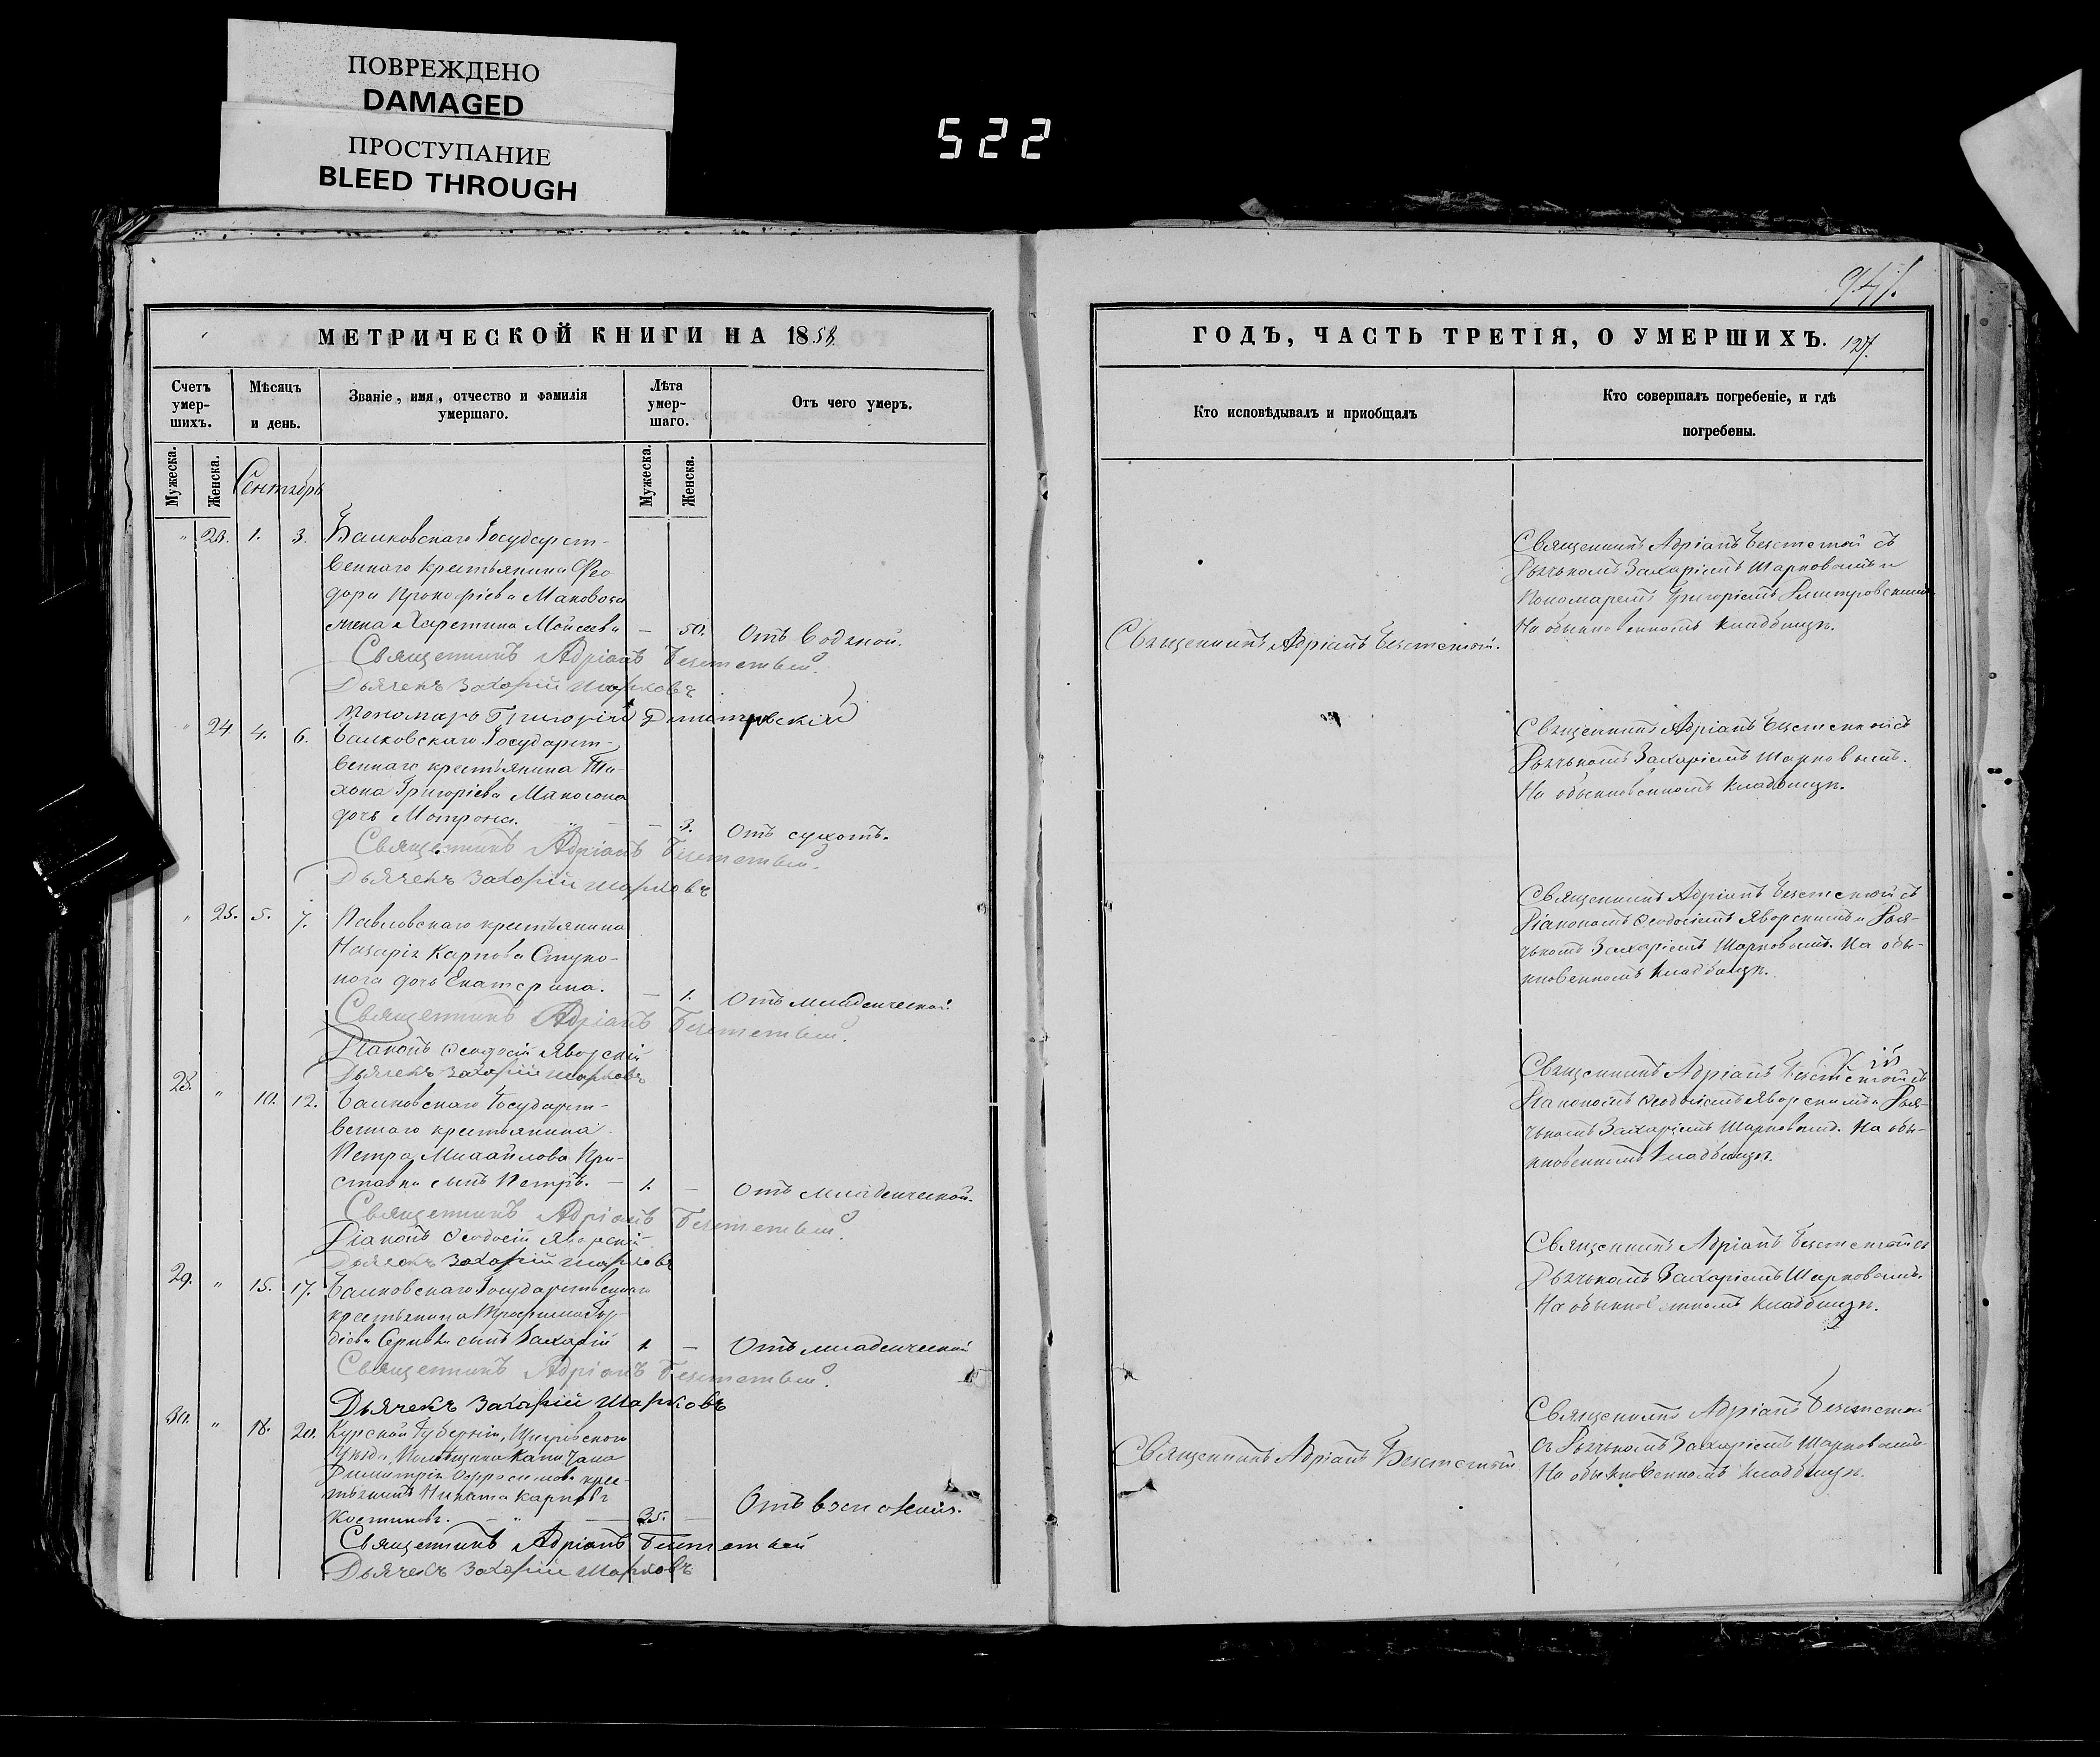 ПОВРЕЖДЕНО
DAMAGED
ПРОСТУПАНИЕ
BLEED THROUGH
522
МЕТРИЧЕСКОЙ КНИГИ НА 1858.
Счетъ умер-шихъ.
Мѣсяцъ и день.
Званіе, имя, отчество и фамилія умершаго.
Лѣта умер-шаго.
Отъ чего умеръ.
Мужеска. Женска. Сентябрь Мужеска. Женска.
" 23. 1. 3. Государст-
веннаго крестьянина Фео-
дора Прокофіева
жена Харетина Моисеева — 50. Отъ водяной.
Священникъ Адріанъ
Дьячекъ Захарій Шарковъ
Пономарь Григорій Димитровскій
" 24 4. 6. Государст-
веннаго крестьянина Ти-
хона Григоріева
дочь Мотрона. — 3. Отъ сухотъ.
Священникъ Адріанъ
Дьячекъ Захарій Шарковъ
" 25. 5. 7. Павловскаго крестьянина
Назарія Карпова
дочь Екатерина. — 1. Отъ младенческой.
Священникъ Адріанъ
Діаконъ Феодосій Яворскій
Дьячекъ Захарій Шарковъ
28. " 10. 12. Государст-
веннаго крестьянина
Петра Михайлова При-
ставки сынъ Петръ. — 1. — Отъ младенческой.
Священникъ Адріанъ
Діаконъ Феодосій Яворскій
Дьячекъ Захарій Шарковъ
29. " 15. 17. Государственнаго
крестьянина Трофима
сынъ Захарій 1. — Отъ младенческой
Священникъ Адріанъ
Дьячекъ Захарій Шарковъ
30. " 18. 20. Курской Губерніи,
Уѣзда,
Димитрія крес-
тьянинъ Никита Карповъ
Костиковъ. — " — 35. —
Священникъ Адріанъ
Дьячекъ Захарій Шарковъ
ГОДЪ, ЧАСТЬ ТРЕТІЯ, О УМЕРШИХЪ. 127.
Кто исповѣдывалъ и приобщалъ
Кто совершалъ погребеніе, и гдѣ
погребены.
Священникъ Адріанъ
Священникъ Адріанъ съ
Дьячкомъ Захаріемъ Шарковымъ и
Пономаремъ Григоріемъ Димитровскимъ
На обыкновенномъ кладбищѣ.
Священникъ Адріанъ съ
Дьячкомъ Захаріемъ Шарковымъ.
На обыкновенномъ кладбищѣ.
Священникъ Адріанъ съ
Діакономъ Феодосіемъ Яворскимъ и Дья-
чкомъ Захаріемъ Шарковымъ. На обы-
кновенномъ кладбищѣ.
Священникъ Адріанъ съ
Діакономъ Феодосіемъ Яворскимъ и Дья-
чкомъ Захаріемъ Шарковымъ. На обы-
кновенномъ кладбищѣ.
Священникъ Адріанъ съ
Дьячкомъ Захаріемъ Шарковымъ.
На обыкновенномъ кладбищѣ.
Священникъ Адріанъ
Священникъ Адріанъ
съ Дьячкомъ Захаріемъ Шарковымъ
На обыкновенномъ кладбищѣ.